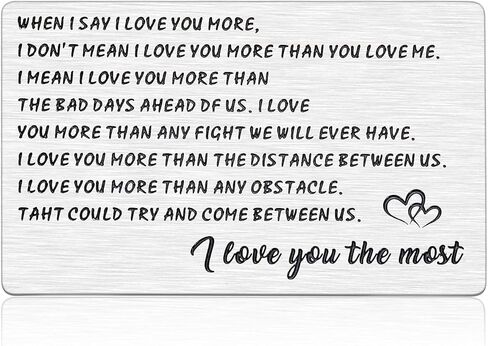 WHEN I SAY I LOVE YOU MORE,
I DON'T MEAN I LOVE YOU MORE THAN YOU LOVE ME.
I MEAN I LOVE YOU MORE THAN
THE BAD DAYS AHEAD DF US. I LOVE
YOU MORE THAN ANY FIGHT WE WILL EVER HAVE.
I LOVE YOU MORE THAN THE DISTANCE BETWEEN US.
I LOVE YOU MORE THAN ANY OBSTACLE.
TAHT COULD TRY AND COME BETWEEN US.
I love you the most